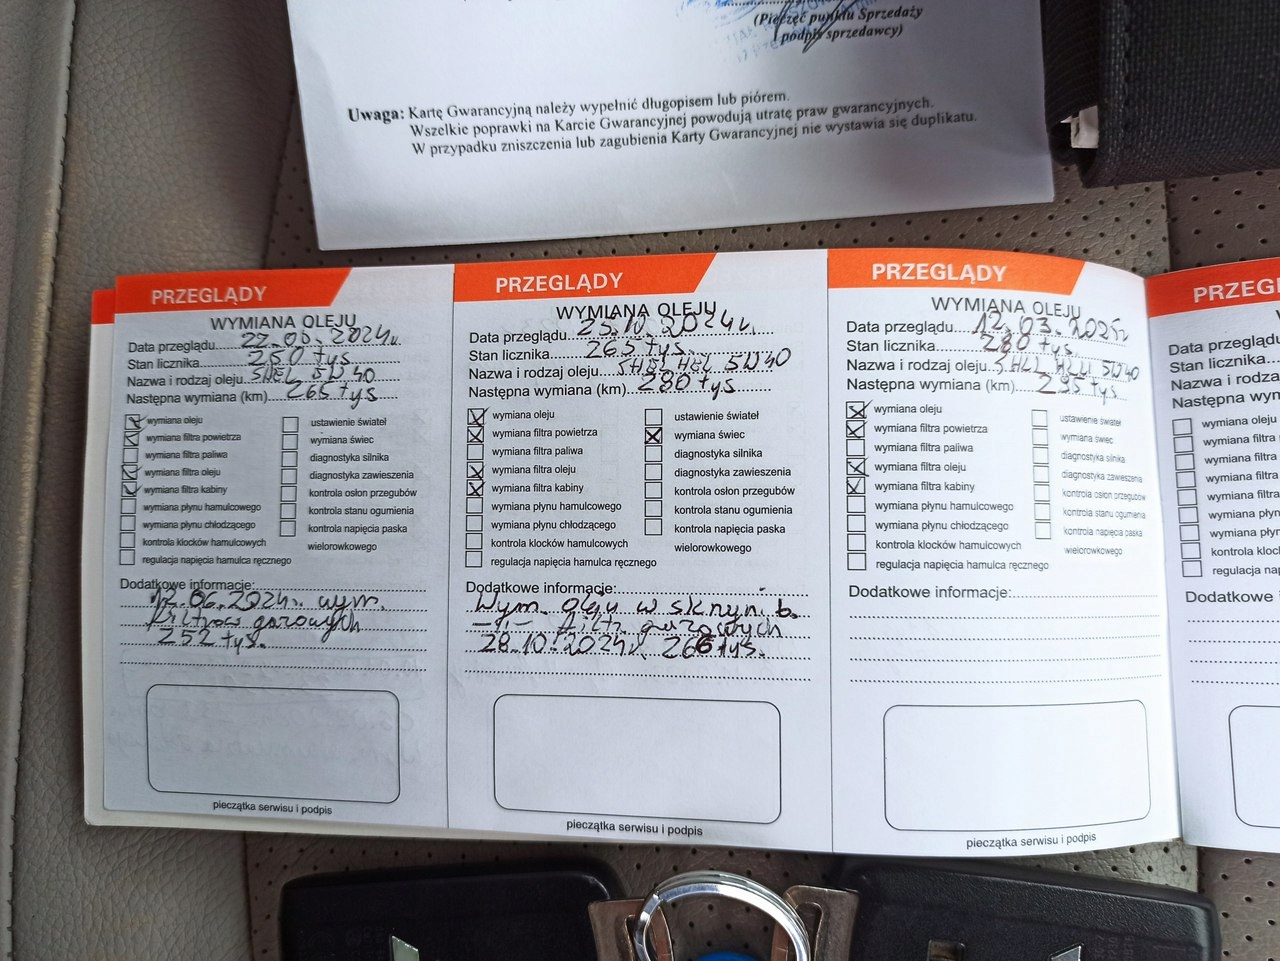 (Pieczęć punktu Sprzedaży
podpis sprzedawcy)
Uwaga: Kartę Gwarancyjną należy wypełnić długopisem lub piórem.
Wszelkie poprawki na Karcie Gwarancyjnej powodują utratę praw gwarancyjnych.
W przypadku zniszczenia lub zagubienia Karty Gwarancyjnej nie wystawia się duplikatu.
PRZEGLĄDY
WYMIANA OLEJU
Data przeglądu 22.05.2024r.
Stan licznika 250 tys
Nazwa i rodzaj oleju SHEL 5W40
Następna wymiana (km) 265 tys
wymiana oleju
wymiana filtra powietrza
wymiana filtra paliwa
wymiana filtra oleju
wymiana filtra kabiny
wymiana płynu hamulcowego
wymiana płynu chłodzącego
kontrola klocków hamulcowych
regulacja napięcia hamulca ręcznego
ustawienie świateł
wymiana świec
diagnostyka silnika
diagnostyka zawieszenia
kontrola osłon przegubów
kontrola stanu ogumienia
kontrola napięcia paska
wielorowkowego
Dodatkowe informacje:
12.06.2024r. wym.
filtrów gazowych
252 tys.
pieczątka serwisu i podpis
PRZEGLĄDY
WYMIANA OLEJU
Data przeglądu 25.10.2024r.
Stan licznika 265 tys.
Nazwa i rodzaj oleju SHEL HEL 5W40
Następna wymiana (km) 280 tys
wymiana oleju
wymiana filtra powietrza
wymiana filtra paliwa
wymiana filtra oleju
wymiana filtra kabiny
wymiana płynu hamulcowego
wymiana płynu chłodzącego
kontrola klocków hamulcowych
regulacja napięcia hamulca ręcznego
ustawienie świateł
wymiana świec
diagnostyka silnika
diagnostyka zawieszenia
kontrola osłon przegubów
kontrola stanu ogumienia
kontrola napięcia paska
wielorowkowego
Dodatkowe informacje:
Wym. oleju w skrzyni b.
-,,- filtr. gazowych
28.10.2024r. 266 tys.
pieczątka serwisu i podpis
PRZEGLĄDY
WYMIANA OLEJU
Data przeglądu 12.03.2025r
Stan licznika 280 tys
Nazwa i rodzaj oleju 5W40
Następna wymiana (km) 295 tys
wymiana oleju
wymiana filtra powietrza
wymiana filtra paliwa
wymiana filtra oleju
wymiana filtra kabiny
wymiana płynu hamulcowego
wymiana płynu chłodzącego
kontrola klocków hamulcowych
regulacja napięcia hamulca ręcznego
ustawienie świateł
wymiana świec
diagnostyka silnika
diagnostyka zawieszenia
kontrola osłon przegubów
kontrola stanu ogumienia
kontrola napięcia paska
wielorowkowego
Dodatkowe informacje:
pieczątka serwisu i podpis
PRZEGL
Data przeglądu
Stan licznika
Nazwa i rodza
Następna wym
wymiana oleju
wymiana filtra
wymiana filtra
wymiana filtra
wymiana filtra
wymiana płyn
wymiana płyn
kontrola kloc
regulacja nap
Dodatkowe in